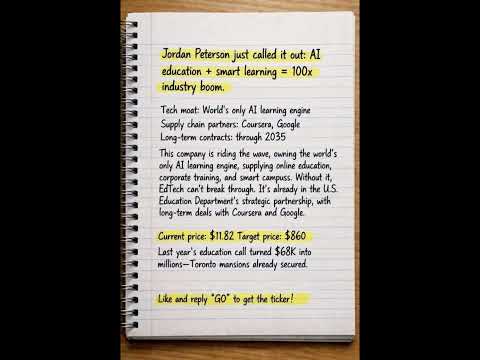 Jordan Peterson just called it out: AI
education + smart learning = 100x
industry boom.
Tech moat: World's only AI learning engine
Supply chain partners: Coursera, Google
Long-term contracts: through 2035
This company is riding the wave, owning the world's
only AI learning engine, supplying online education,
corporate training, and smart campuss. Without it,
EdTech can't break through. It's already in the U.S.
Education Department's strategic partnership, with
long-term deals with Coursera and Google.
Current price: $11.82 Target price: $860
Last year's education call turned $68K into
millions—Toronto mansions already secured.
Like and reply "GO" to get the ticker!